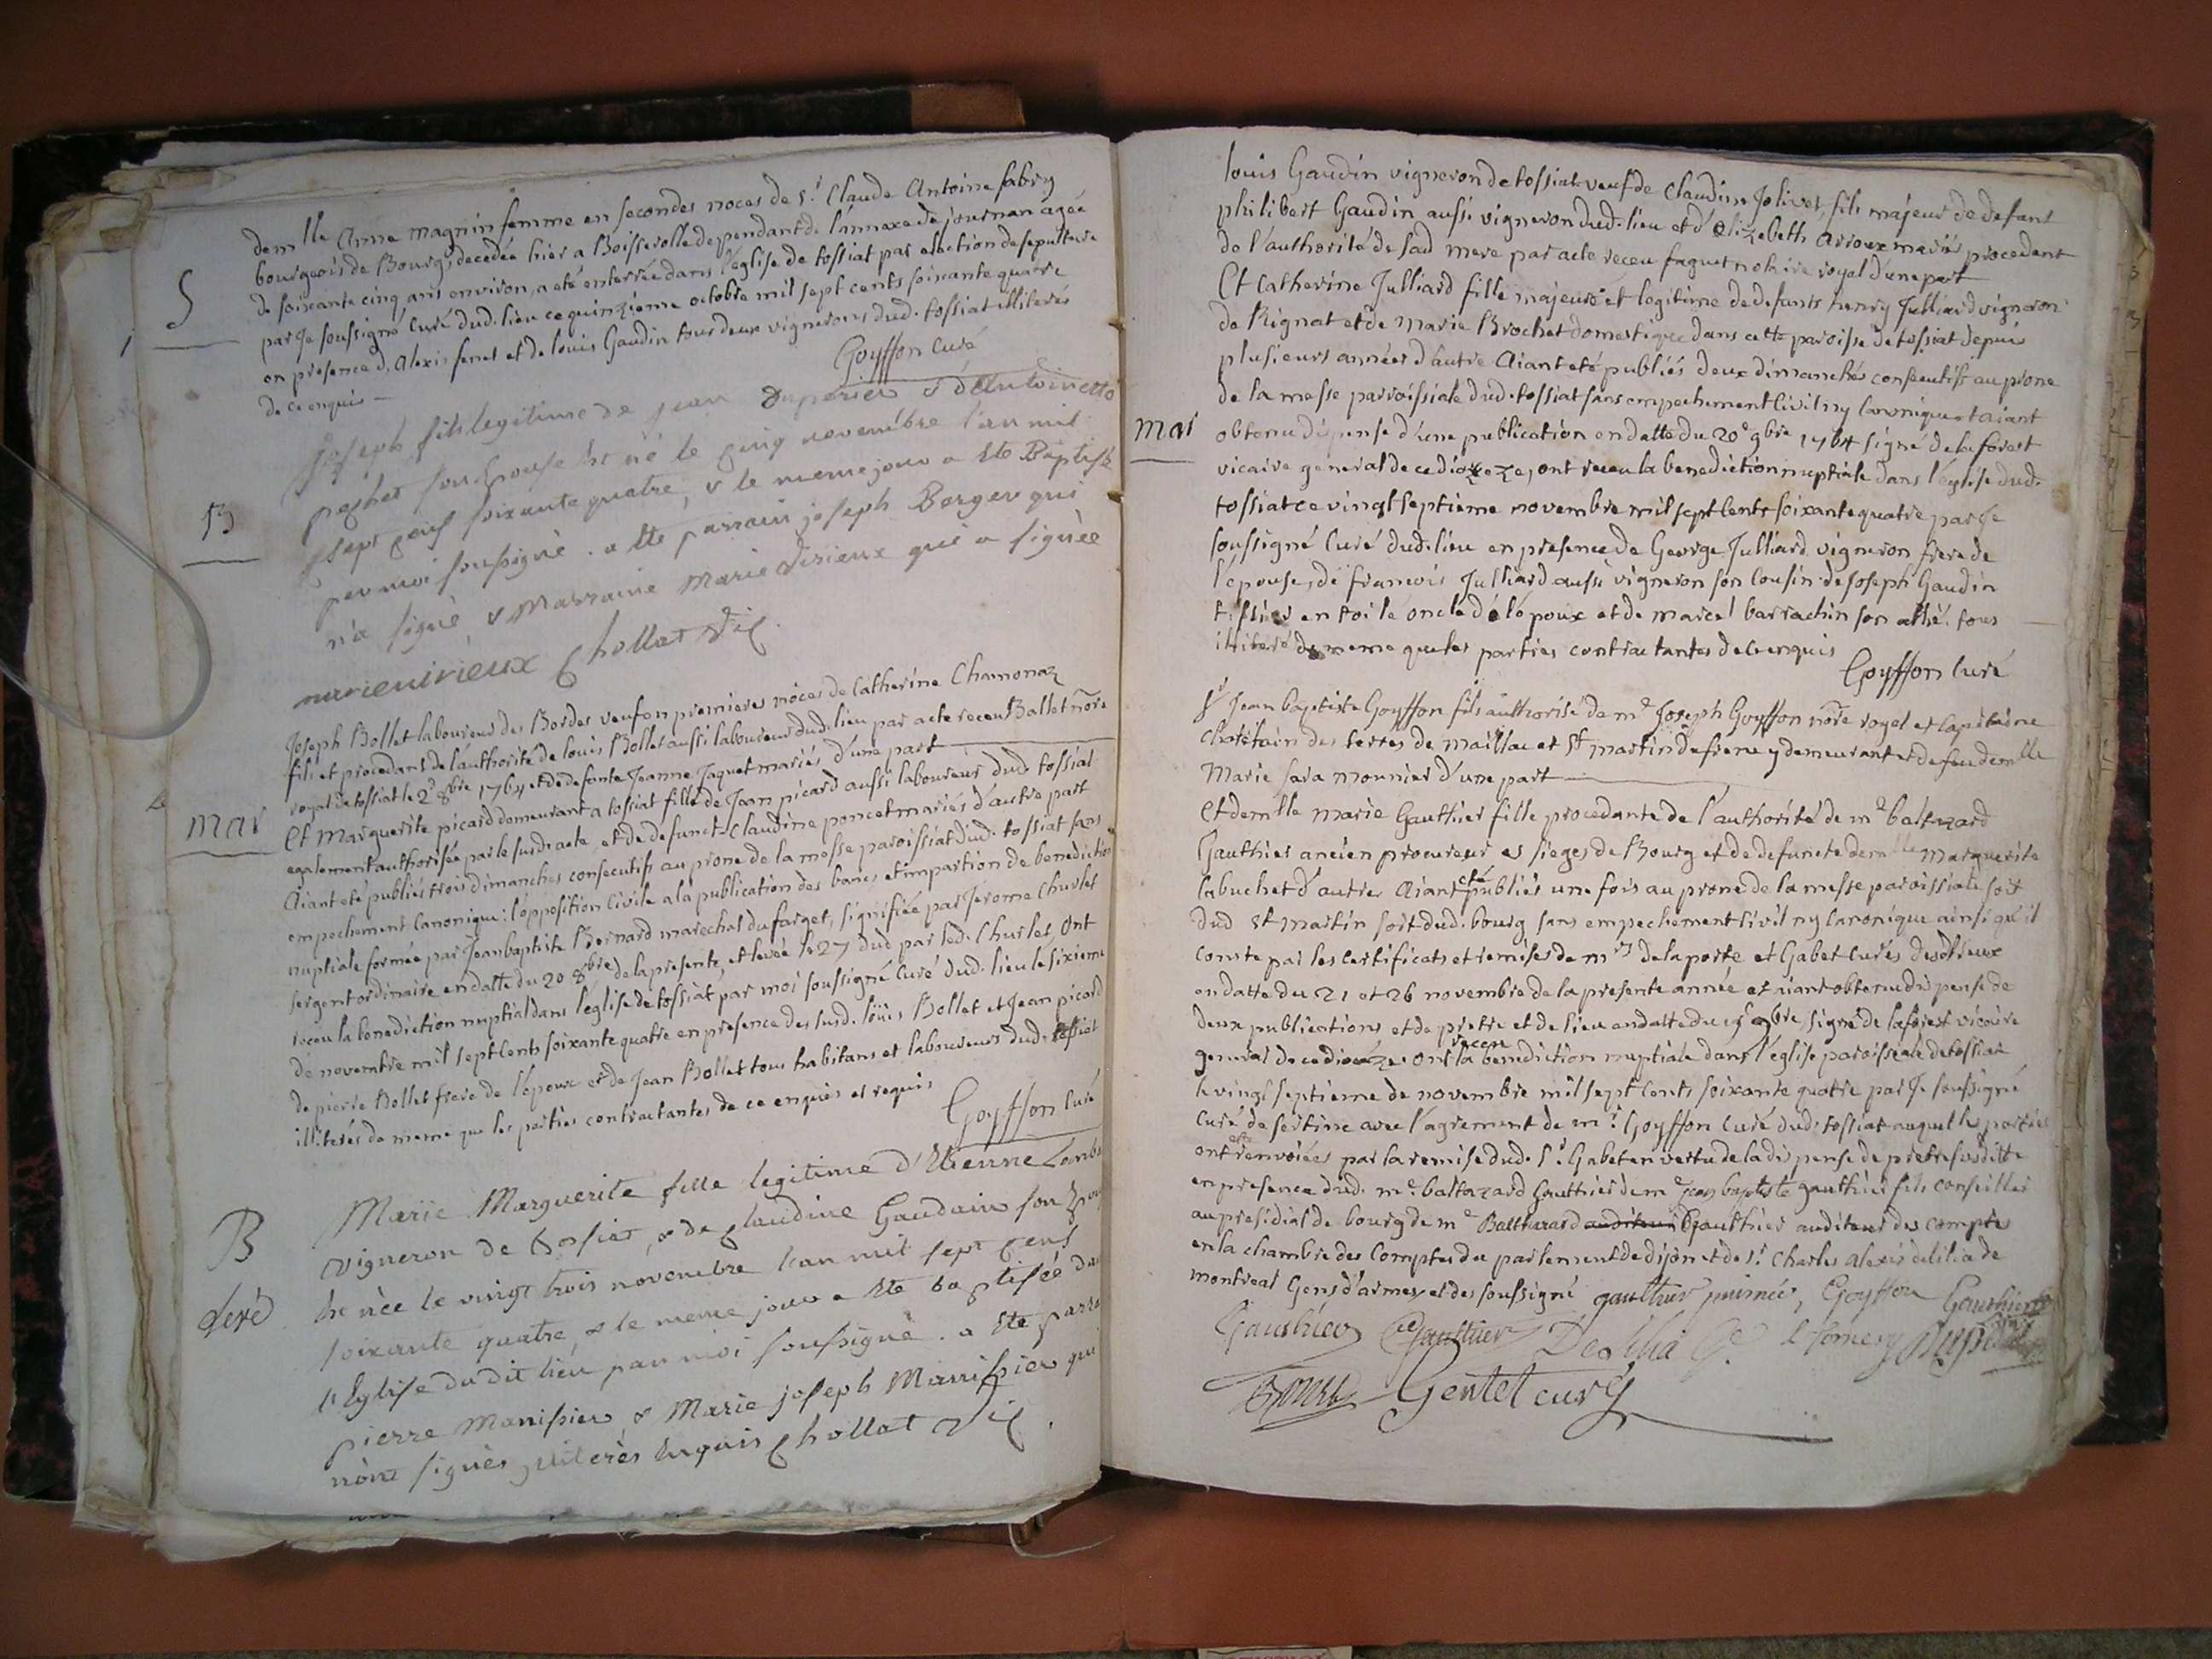 demlle Anne Magnin femme en secondes noces de sr. Claude Antoine fabry
bourgeois de Bourg, decedée hier a Boisserolle dependant de l'annaxe de journan agée
S
de soixante cinq ans environ, a eté enterrée dans l'église de tossiat par election de sepulture
par Je soussigné Curé dud. lieu ce quinzieme octobre mil sept cents soixante quatre
en presence d. Alexis fenet et de louis Gaudin tous deux vignerons dud. tossiat illiterés
de ce enquis
Goyffon curé
Joseph fils legitime de jean Duperier & d'Antoinette
B
pochet son Epouse est né le cinq novembre l'an mil
sept cens soixante quatre, & le meme jour a ete Baptisé
par moi soussigné. a ete parrain joseph Berger qui
n'a signé, & Marraine Marie Virieux qui a signée
marie virieux Chollat Vic.
Joseph Bollet laboureur des Bordes veuf en premieres nôces de Catherine Chamonaz
fils et procedant de l'authorité de louis Bollet aussi laboureur dud. lieu par acte receu Ballet nōre
royal de tossiat le 2e 8bre 1764 et de defunte Jeanne Jaquet mariés d'une part
mar
Et Marguerite picard demeurant a tossiat fille de Jean picard aussi laboureur dud. tossiat
egalement authorisée par le susdt acte, et de defuncte Claudine poncet mariés d'autre part
Aiant eté publiés trois dimanches consecutifs au prone de la messe paroissial dud. tossiat sans
empechement Canonique: l'opposition Civile a la publication des bancs et impartion de benediction
nuptiale formée par Jean baptiste Bernard marechal du farget, signifiée par Jerome Churlet
sergent ordinaire en datte du 20 8bre de la presente, et levée le 27 dud par led. Churlet, ont
receu la benediction nuptial dans l'église de tossiat par moi soussigné Curé dud. lieu le sixieme
de novembre mil sept Cents soixante quatre en presence des susd. loüis Bollet et Jean picard
de pierre Bollet frere de l'époux et de Jean Bollet tous habitans et laboureurs dud. tossiat
illiterés de meme que les parties contractantes de ce enquis et requis
Goyffon Curé
Marie Marguerite fille legitime d'Etienne
B
vigneron de tossiat, & de Claudine Gaudain son
est née le vingt trois novembre l'an mil sept cens
soixante quatre, & le meme jour a ete baptisée
l'Eglise du dit lieu par moi soussigné. a ete
pierre Manissier & Marie joseph Manissier
nônt signés illiterés enquis Chollat Vic.
louis Gaudin vigneron de tossiat veuf de Claudine Jolivet, fils majeur de defunt
philibert Gaudin aussi vigneron dud. lieu et d'Elizebeth Arroux mariés procedant
de l'authorité de sad mere par acte receu faguet notaire royal d'une part
Et Catherine Julliard fille majeure et legitime de defunts henry Julliard vigneron
de Rignat et de Marie Brochet domestique dans cette paroisse de tossiat depuis
plusieurs années d'autre Aiant eté publiés deux dimanches consecutifs au prone
de la messe parroissiale dud. tossiat sans empechement Civil ny Canonique et aiant
mar
obtenu dispense d'une publication en datte du 20e 9bre 1764 signé de la forest
vicaire general de ce dioceze, ont receu la benediction nuptiale dans l'église dud.
tossiat ce vingt septieme novembre mil sept Cents soixante quatre par Je
soussigné Curé dud. lieu en presence de George Julliard vigneron frere de
l'epouse, de francois Julliard aussi vigneron son Cousin de Joseph Gaudin
tissier en toile oncle de l'époux et de Marcel barrachin son allié. tous
illiteré de meme que les parties contractantes de ce enquis
Goyffon Curé
sr Jean baptiste Goyffon fils authorisé de me Joseph Goyffon nōre royal et Capitaine
Chatelain des terres de Maillac et St martin du frene y demeurant et de feu demlle
Marie sara monnier d'une part
Et demlle marie Gauthier fille procedante de l'authorité de me baltazard
Gauthier ancien procureur es sieges de Bourg et de defuncte demlle Marguerite
labuchet d'autre Aiant eté publiés une fois au prone de la messe paroissiale soit
dud St martin soit dud. bourg sans empechement Civil ny Canonique ainsi qu'il
conste par les certificats et remises de mrs delaporte et Gabet Curés desd lieux
en datte du 21 et 26 novembre de la presente année et aiant obtenu dispense de
deux publications et de pretre et de lieu en datte du 9bre, signé de la forest vicaire
general de ce dioceze ont receu la benediction nuptiale dans l'eglise paroissiale de tossiat
le vingt septieme de novembre mil sept Cents soixante quatre par Je soussigné
Curé de sertine avec l'agrement de mr. Goyffon Curé dud. tossiat auquel les parties
ont eté renvoiées par la remise dud. sr. Gabet en vertu de la dispense de pretre susditte
en presence dud. me. baltazard Gauthier de me Jean baptiste gauthier fils conseiller
au presidial de bourg de me Balthazard auditeur Gauthier auditeur des comptes
en la chambre des Comptes du parlement de dijon et de sr. Charles Alexis de lilia de
montreal Gens d'armes et des soussigné gauthier puisnée, Goyffon Gauthier
Gauthier Gauthier De Lilia
Gentet curé